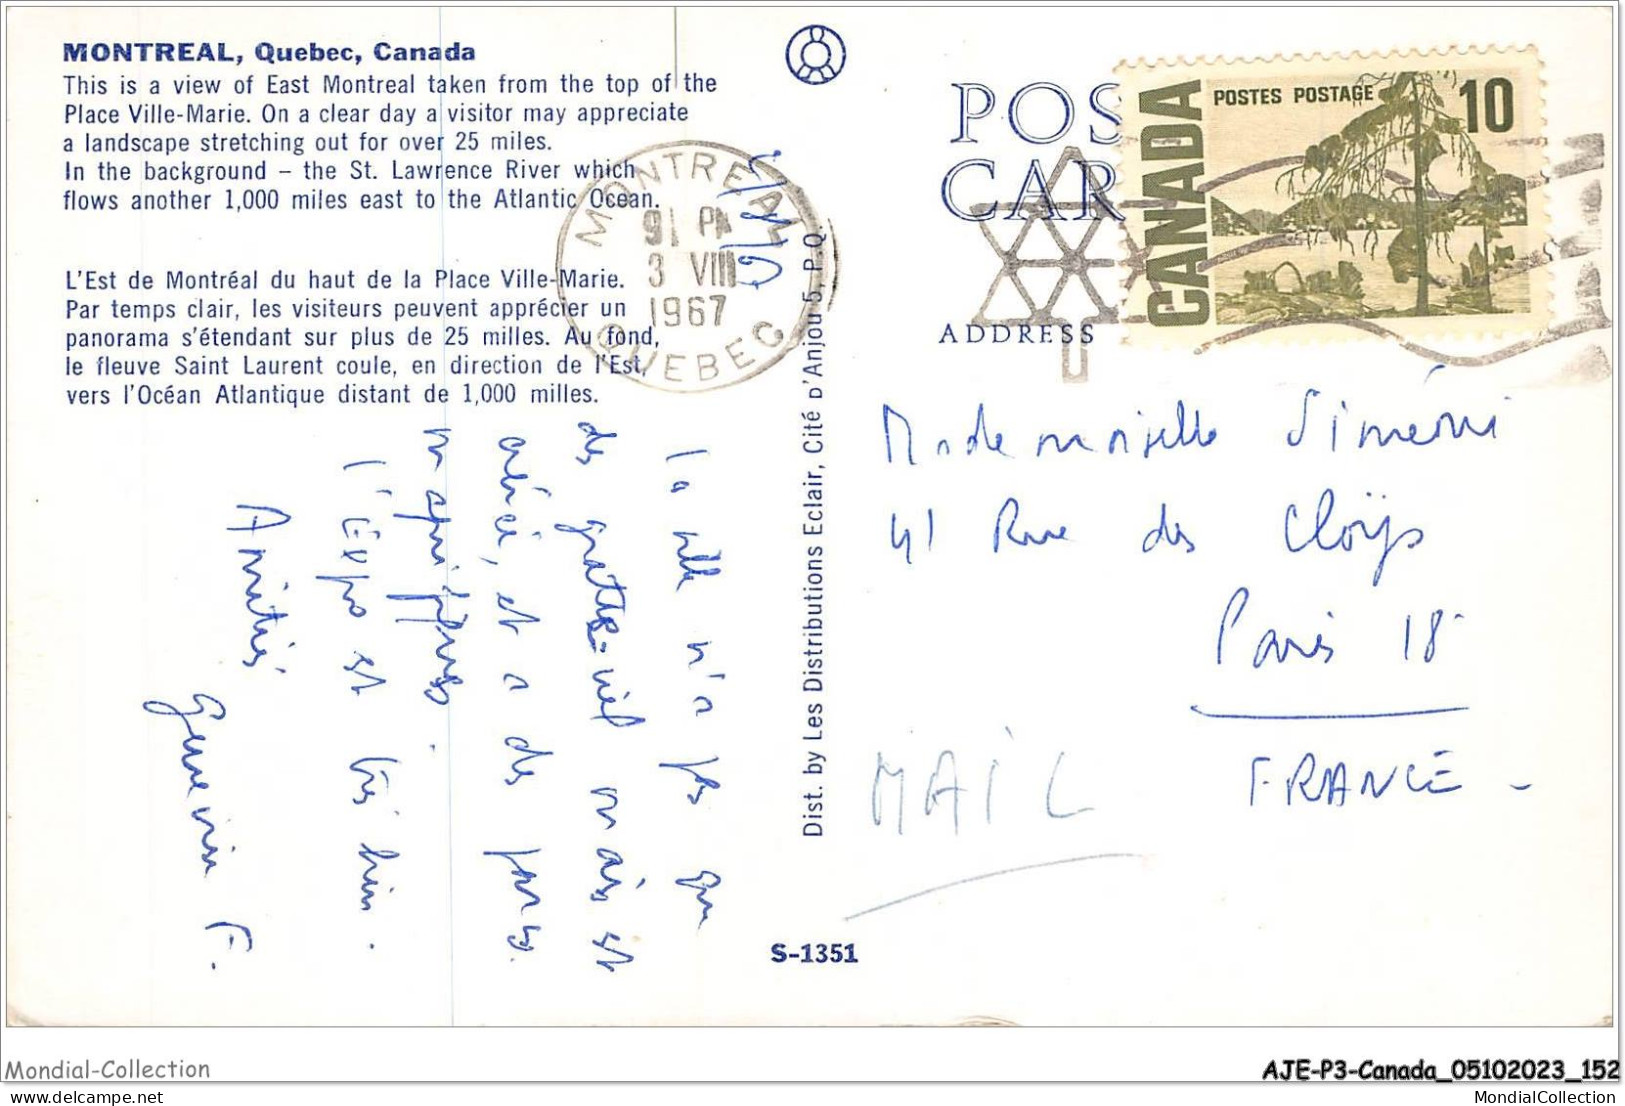 MONTREAL, Quebec, Canada
This is a view of East Montreal taken from the top of the
Place Ville-Marie. On a clear day a visitor may appreciate
a landscape stretching out for over 25 miles.
In the background – the St. Lawrence River which
flows another 1,000 miles east to the Atlantic Ocean.
L'Est de Montréal du haut de la Place Ville-Marie.
Par temps clair, les visiteurs peuvent apprécier un
panorama s'étendant sur plus de 25 milles. Au fond,
le fleuve Saint Laurent coule, en direction de l'Est,
vers l'Océan Atlantique distant de 1,000 milles.
MONTREAL
PM
3 VIII
1967
QUEBEC
la ville n'a pas que
des gratte-ciel mais est
aérée, et a des parcs
magnifiques.
l'Expo est très bien.
Amitiés.
Geneviève F.
Dist. by Les Distributions Eclair, Cité d'Anjou 5, P.Q.
S-1351
POS
CAR
ADDRESS
CANADA
POSTES POSTAGE
10
Mademoiselle Siméoni
41 Rue des Cloÿs
Paris 18
FRANCE -
MAIL
Mondial-Collection
AJE-P3-Canada_05102023_152
MondialCollection